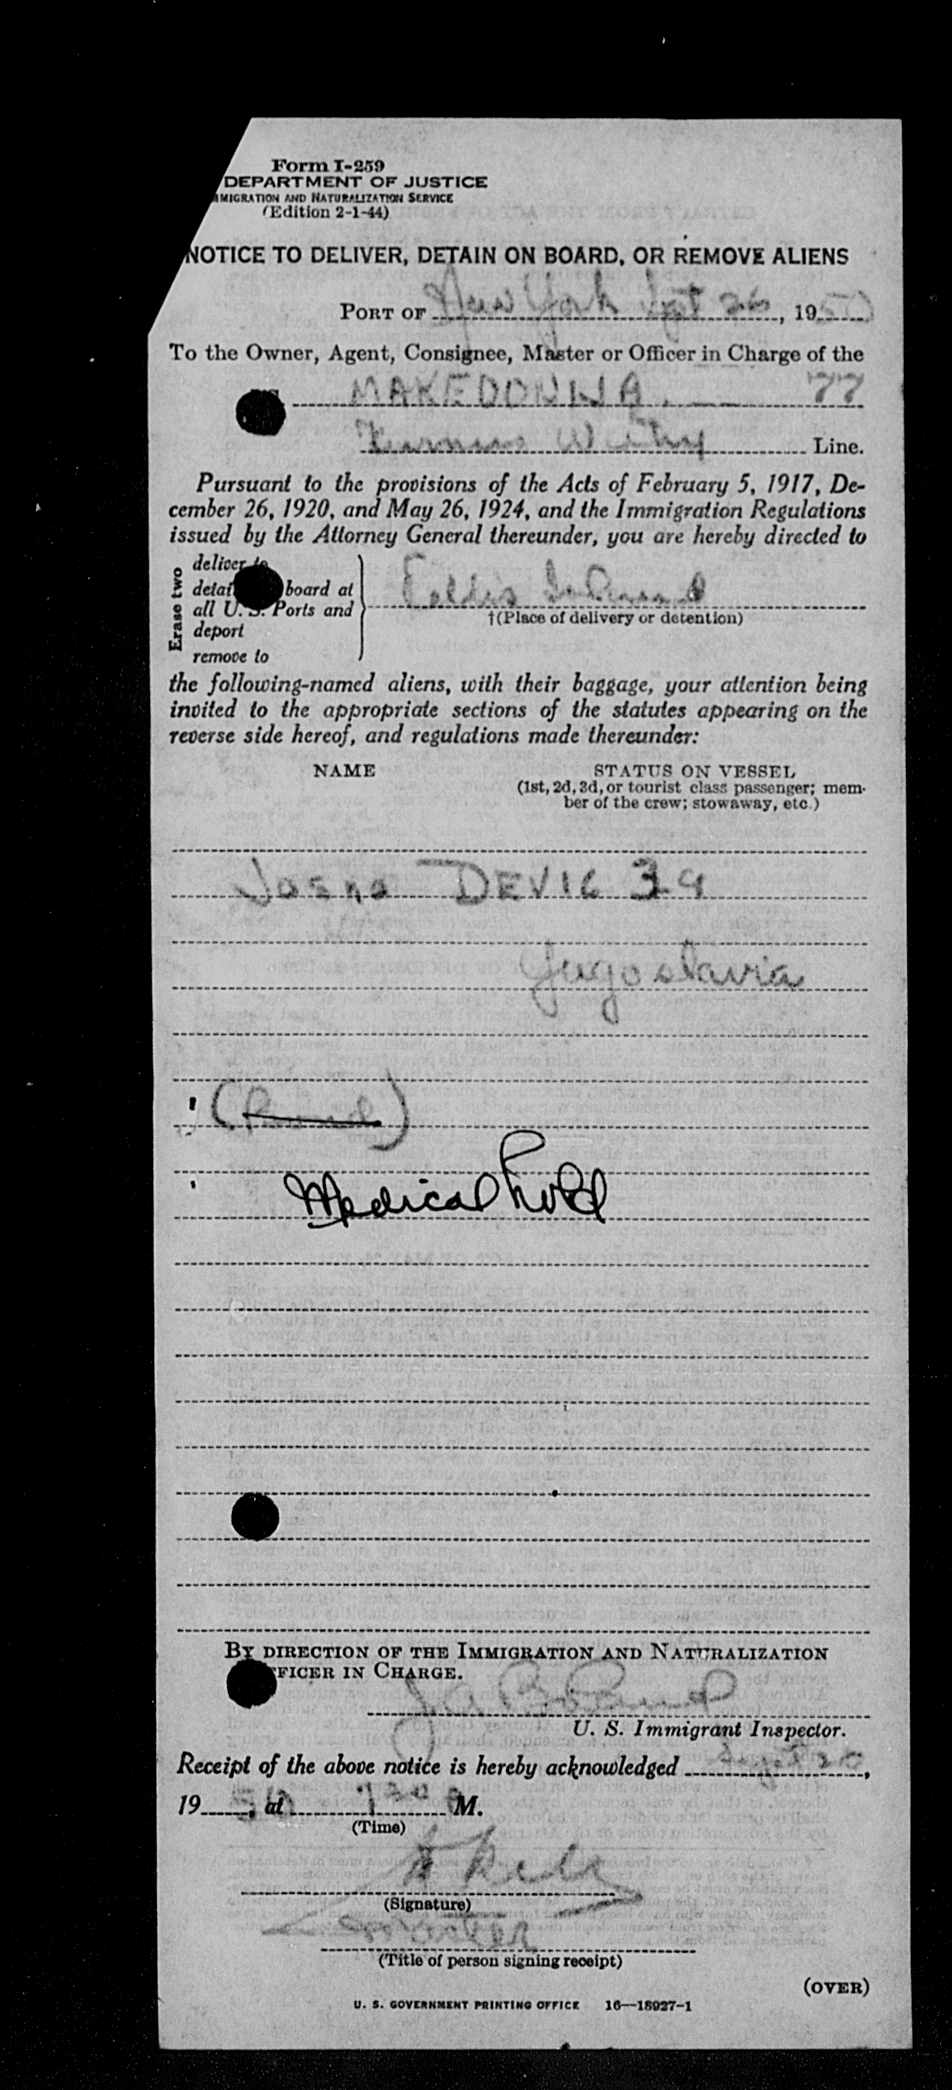 Form I-259
DEPARTMENT OF JUSTICE
MIGRATION AND NATURALIZATION SERVICE
(Edition 2-1-44)
NOTICE TO DELIVER, DETAIN ON BOARD, OR REMOVE ALIENS
PORT OF New York Sept 26, 1950
To the Owner, Agent, Consignee, Master or Officer in Charge of the
MAKEDONIJA 77
Line.
Pursuant to the provisions of the Acts of February 5, 1917, De-
cember 26, 1920, and May 26, 1924, and the Immigration Regulations
issued by the Attorney General thereunder, you are hereby directed to
Erase two
deliver to
detai board at
all U. S. Ports and
deport
remove to
Ellis Island
†(Place of delivery or detention)
the following-named aliens, with their baggage, your attention being
invited to the appropriate sections of the statutes appearing on the
reverse side hereof, and regulations made thereunder:
NAME STATUS ON VESSEL
(1st, 2d, 3d, or tourist class passenger; mem-
ber of the crew; stowaway, etc.)
DEVIC 34
Yugoslavia
Medical hold
BY DIRECTION OF THE IMMIGRATION AND NATURALIZATION
FICER IN CHARGE.
U. S. Immigrant Inspector.
Receipt of the above notice is hereby acknowledged Sept 26,
19 50, at M.
(Time)
(Signature)
Master
(Title of person signing receipt)
(OVER)
U. S. GOVERNMENT PRINTING OFFICE 16—18927-1